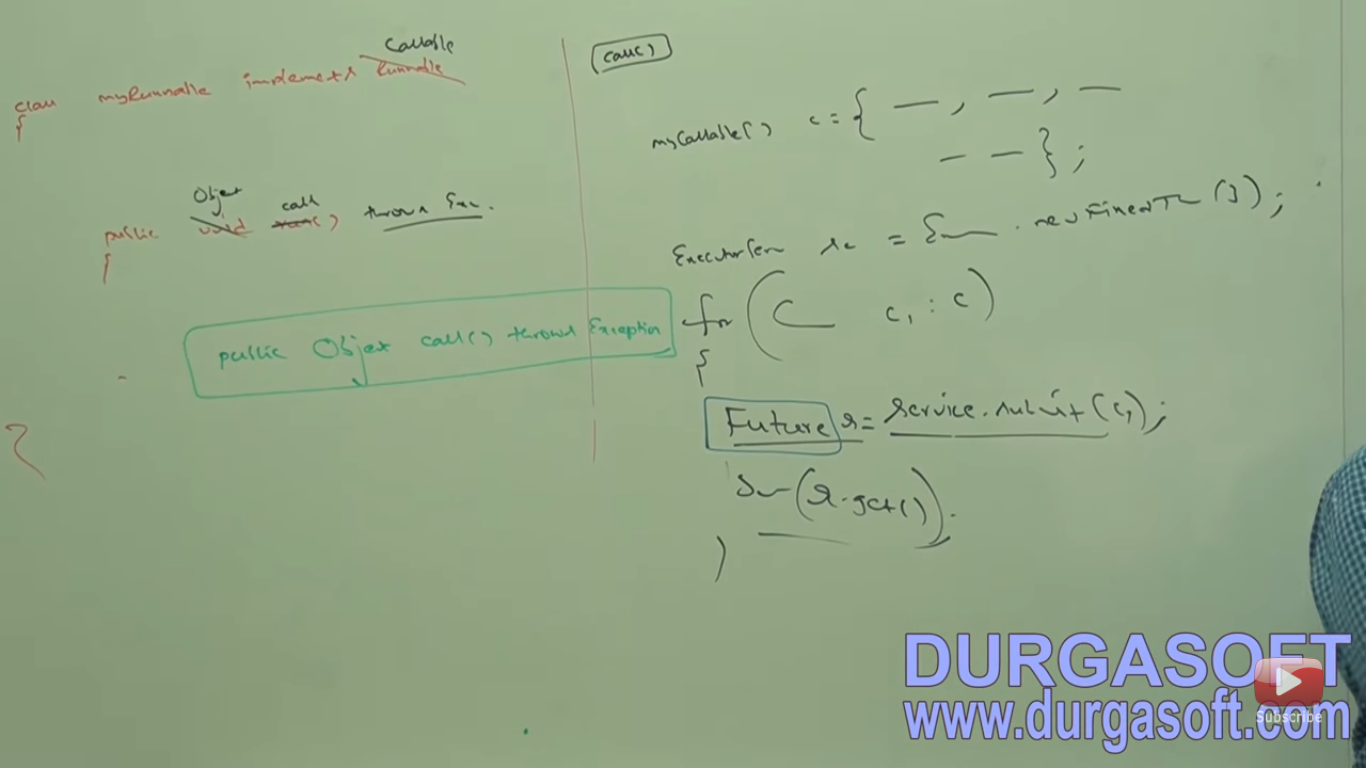 Callable
class myRunnable implements Runnable
{
Object call
public void run() throws Exc.
{
public Object call() throws Exception
}
call()
myCallable[] c = { —, —, —
— — };
ExecutorSer = E . newFixedTh (3);
for ( C c1 : c)
{
Future r = service.submit(c1);
(r.get()).
}
DURGASOFT
www.durgasoft.com
Subscribe